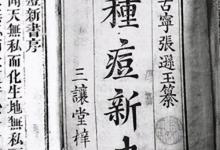 古寧張遜玉纂
種痘新
三讓堂梓
新書序
聞天無私而化生地無私